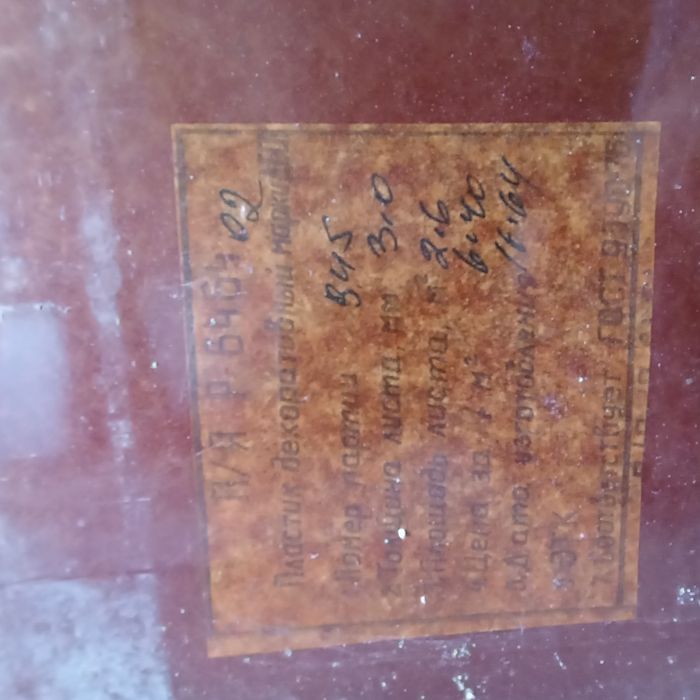 П/Я Р 6461
02
Пластик декоративный марки
1 Номер партии 345
2 Толщина листа, мм 3,0
3 Площадь листа, м² 2.6
4 Цена за 1 м² 6.40
5 Дата изготовления
6 ОТК
7 Соответствует ГОСТ